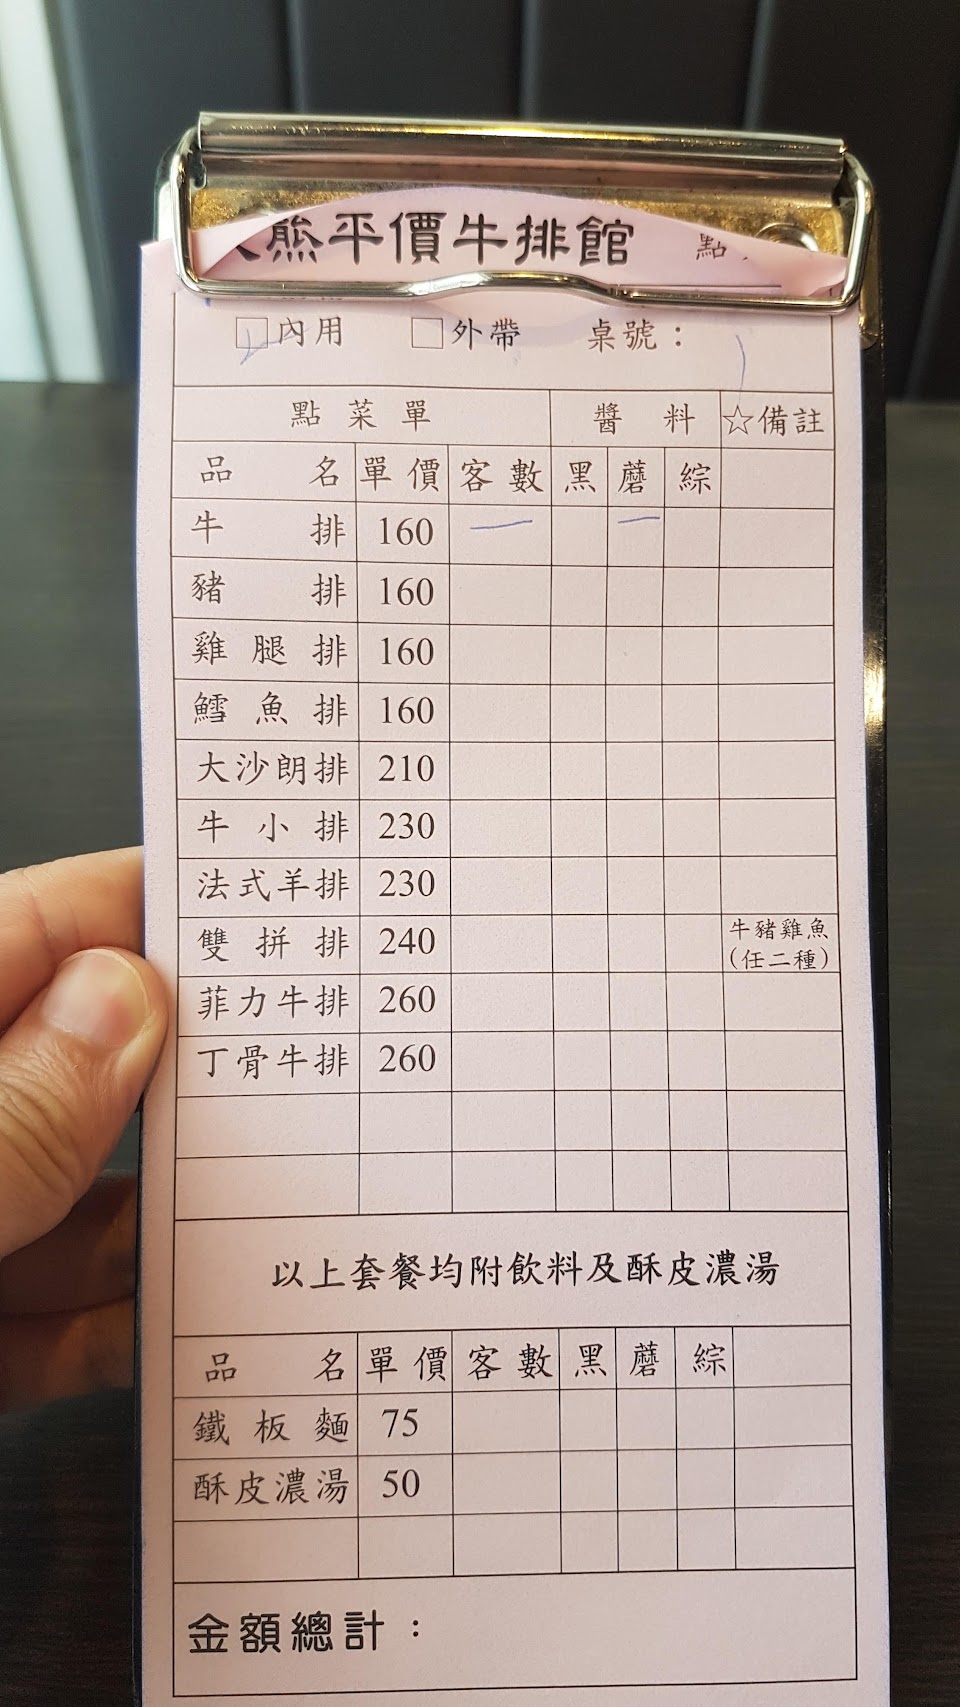 熊平價牛排館 點
□內用 □外帶 桌號：
點菜單 醬料 ☆備註
品名 單價 客數 黑 蘑 綜
牛排 160 一 一
豬排 160
雞腿排 160
鱈魚排 160
大沙朗排 210
牛小排 230
法式羊排 230
雙拼排 240 牛豬雞魚
(任二種)
菲力牛排 260
丁骨牛排 260
以上套餐均附飲料及酥皮濃湯
品名 單價 客數 黑 蘑 綜
鐵板麵 75
酥皮濃湯 50
金額總計：